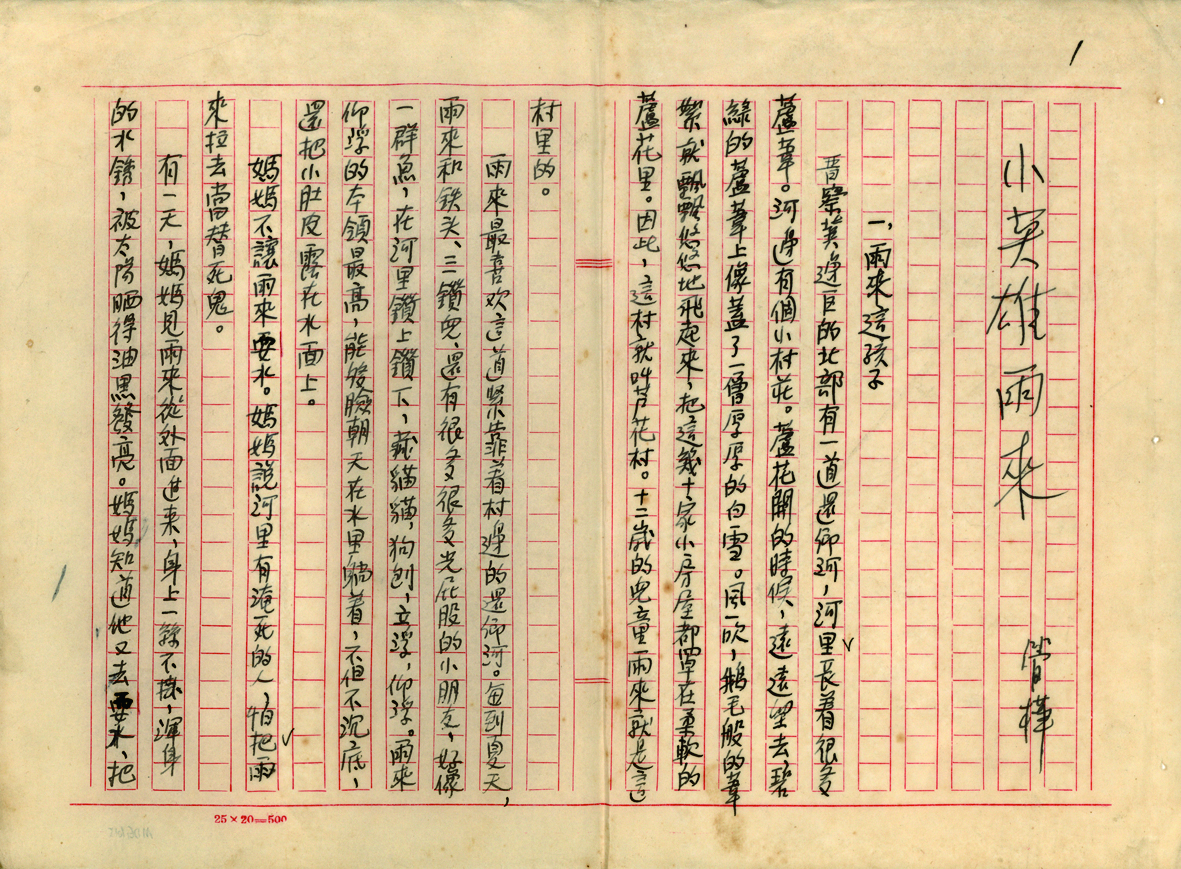 1
小英雄雨來
管樺
一，雨來這孩子
晋察冀邊区的北部有一道還鄉河，河里長着很多
蘆葦。河邊有個小村莊。蘆花開的時候，遠遠望去碧
綠的蘆葦上像蓋了一層厚厚的白雪。風一吹，鵝毛般的葦
絮就飄飄悠悠地飛起來，把這幾十家小房屋都罩在柔軟的
蘆花里。因此，這村就叫芦花村。十二歲的兒童雨來就是這
村里的。
雨來最喜欢這道緊靠着村邊的還鄉河。每到夏天，
雨來和铁头、三鑽兒，還有很多很多光屁股的小朋友，好像
一群魚，在河里鑽上鑽下，藏貓貓，狗刨，立浮，仰浮。雨來
仰浮的本領最高，能够臉朝天在水里躺着，不但不沉底，
還把小肚皮露在水面上。
媽媽不讓雨來耍水。媽媽說河里有淹死的人，怕把雨
來拉去當替死鬼。
有一天，媽媽見雨來從外面進来，身上一絲不掛，渾身
的水銹，被太陽晒得油黑發亮。媽媽知道他又去耍水，把
25×20=500